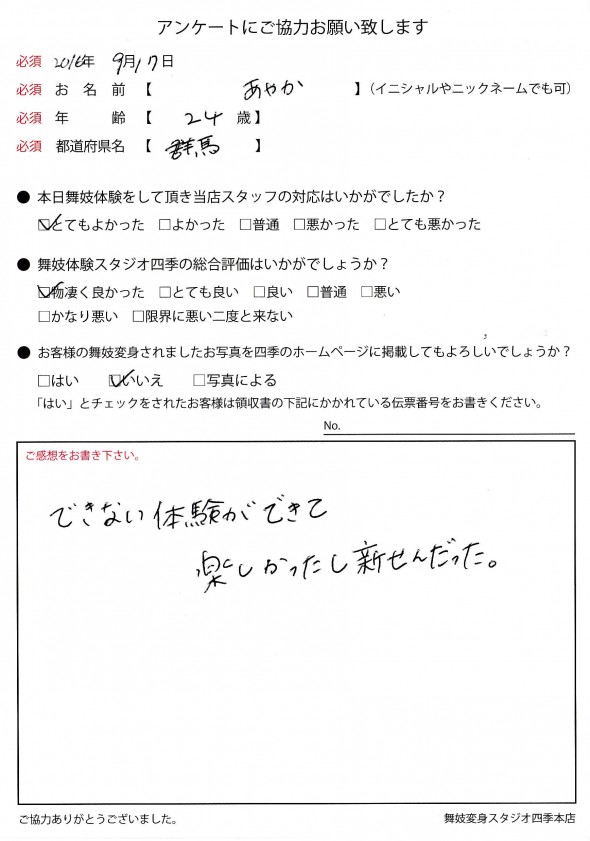 アンケートにご協力お願い致します
必須 2016年 9月17日
必須 お名前【 あやか 】（イニシャルやニックネームでも可）
必須 年齢【 24 歳】
必須 都道府県名【 群馬 】
● 本日舞妓体験をして頂き当店スタッフの対応はいかがでしたか？
☑とてもよかった □よかった □普通 □悪かった □とても悪かった
● 舞妓体験スタジオ四季の総合評価はいかがでしょうか？
☑物凄く良かった □とても良い □良い □普通 □悪い
□かなり悪い □限界に悪い二度と来ない
● お客様の舞妓変身されましたお写真を四季のホームページに掲載してもよろしいでしょうか？
□はい ☑いいえ □写真による
「はい」とチェックをされたお客様は領収書の下記にかかれている伝票番号をお書きください。
No.
ご感想をお書き下さい。
できない体験ができて
楽しかったし新せんだった。
ご協力ありがとうございました。 舞妓変身スタジオ四季本店